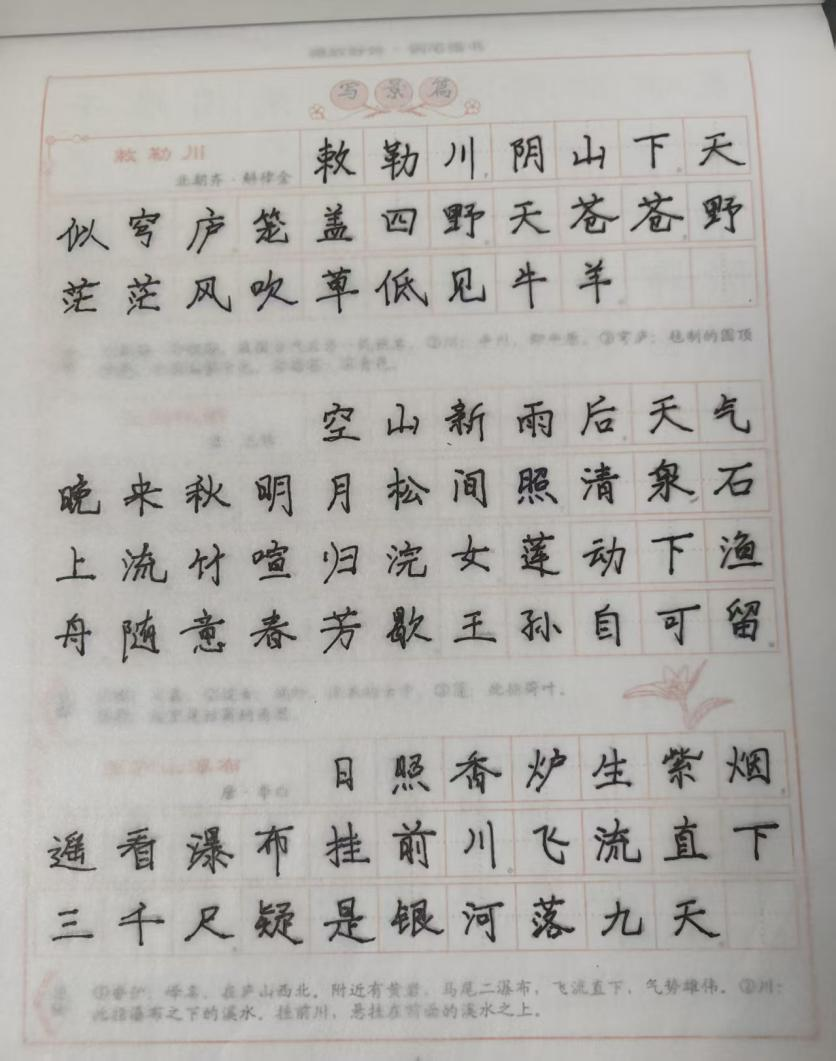 写景篇
敕勒川
北朝齐·斛律金
敕勒川阴山下天
似穹庐笼盖四野天苍苍野
茫茫风吹草低见牛羊
川：平川，即平原。③穹庐：毡制的圆顶
空山新雨后天气
晚来秋明月松间照清泉石
上流竹喧归浣女莲动下渔
舟随意春芳歇王孙自可留
③莲：此指荷叶。
瀑布
唐·李白
日照香炉生紫烟
遥看瀑布挂前川飞流直下
三千尺疑是银河落九天
①香炉：峰名，在庐山西北。附近有黄岩、马尾二瀑布，飞流直下，气势雄伟。②川：
此指瀑布之下的溪水。挂前川，悬挂在前面的溪水之上。